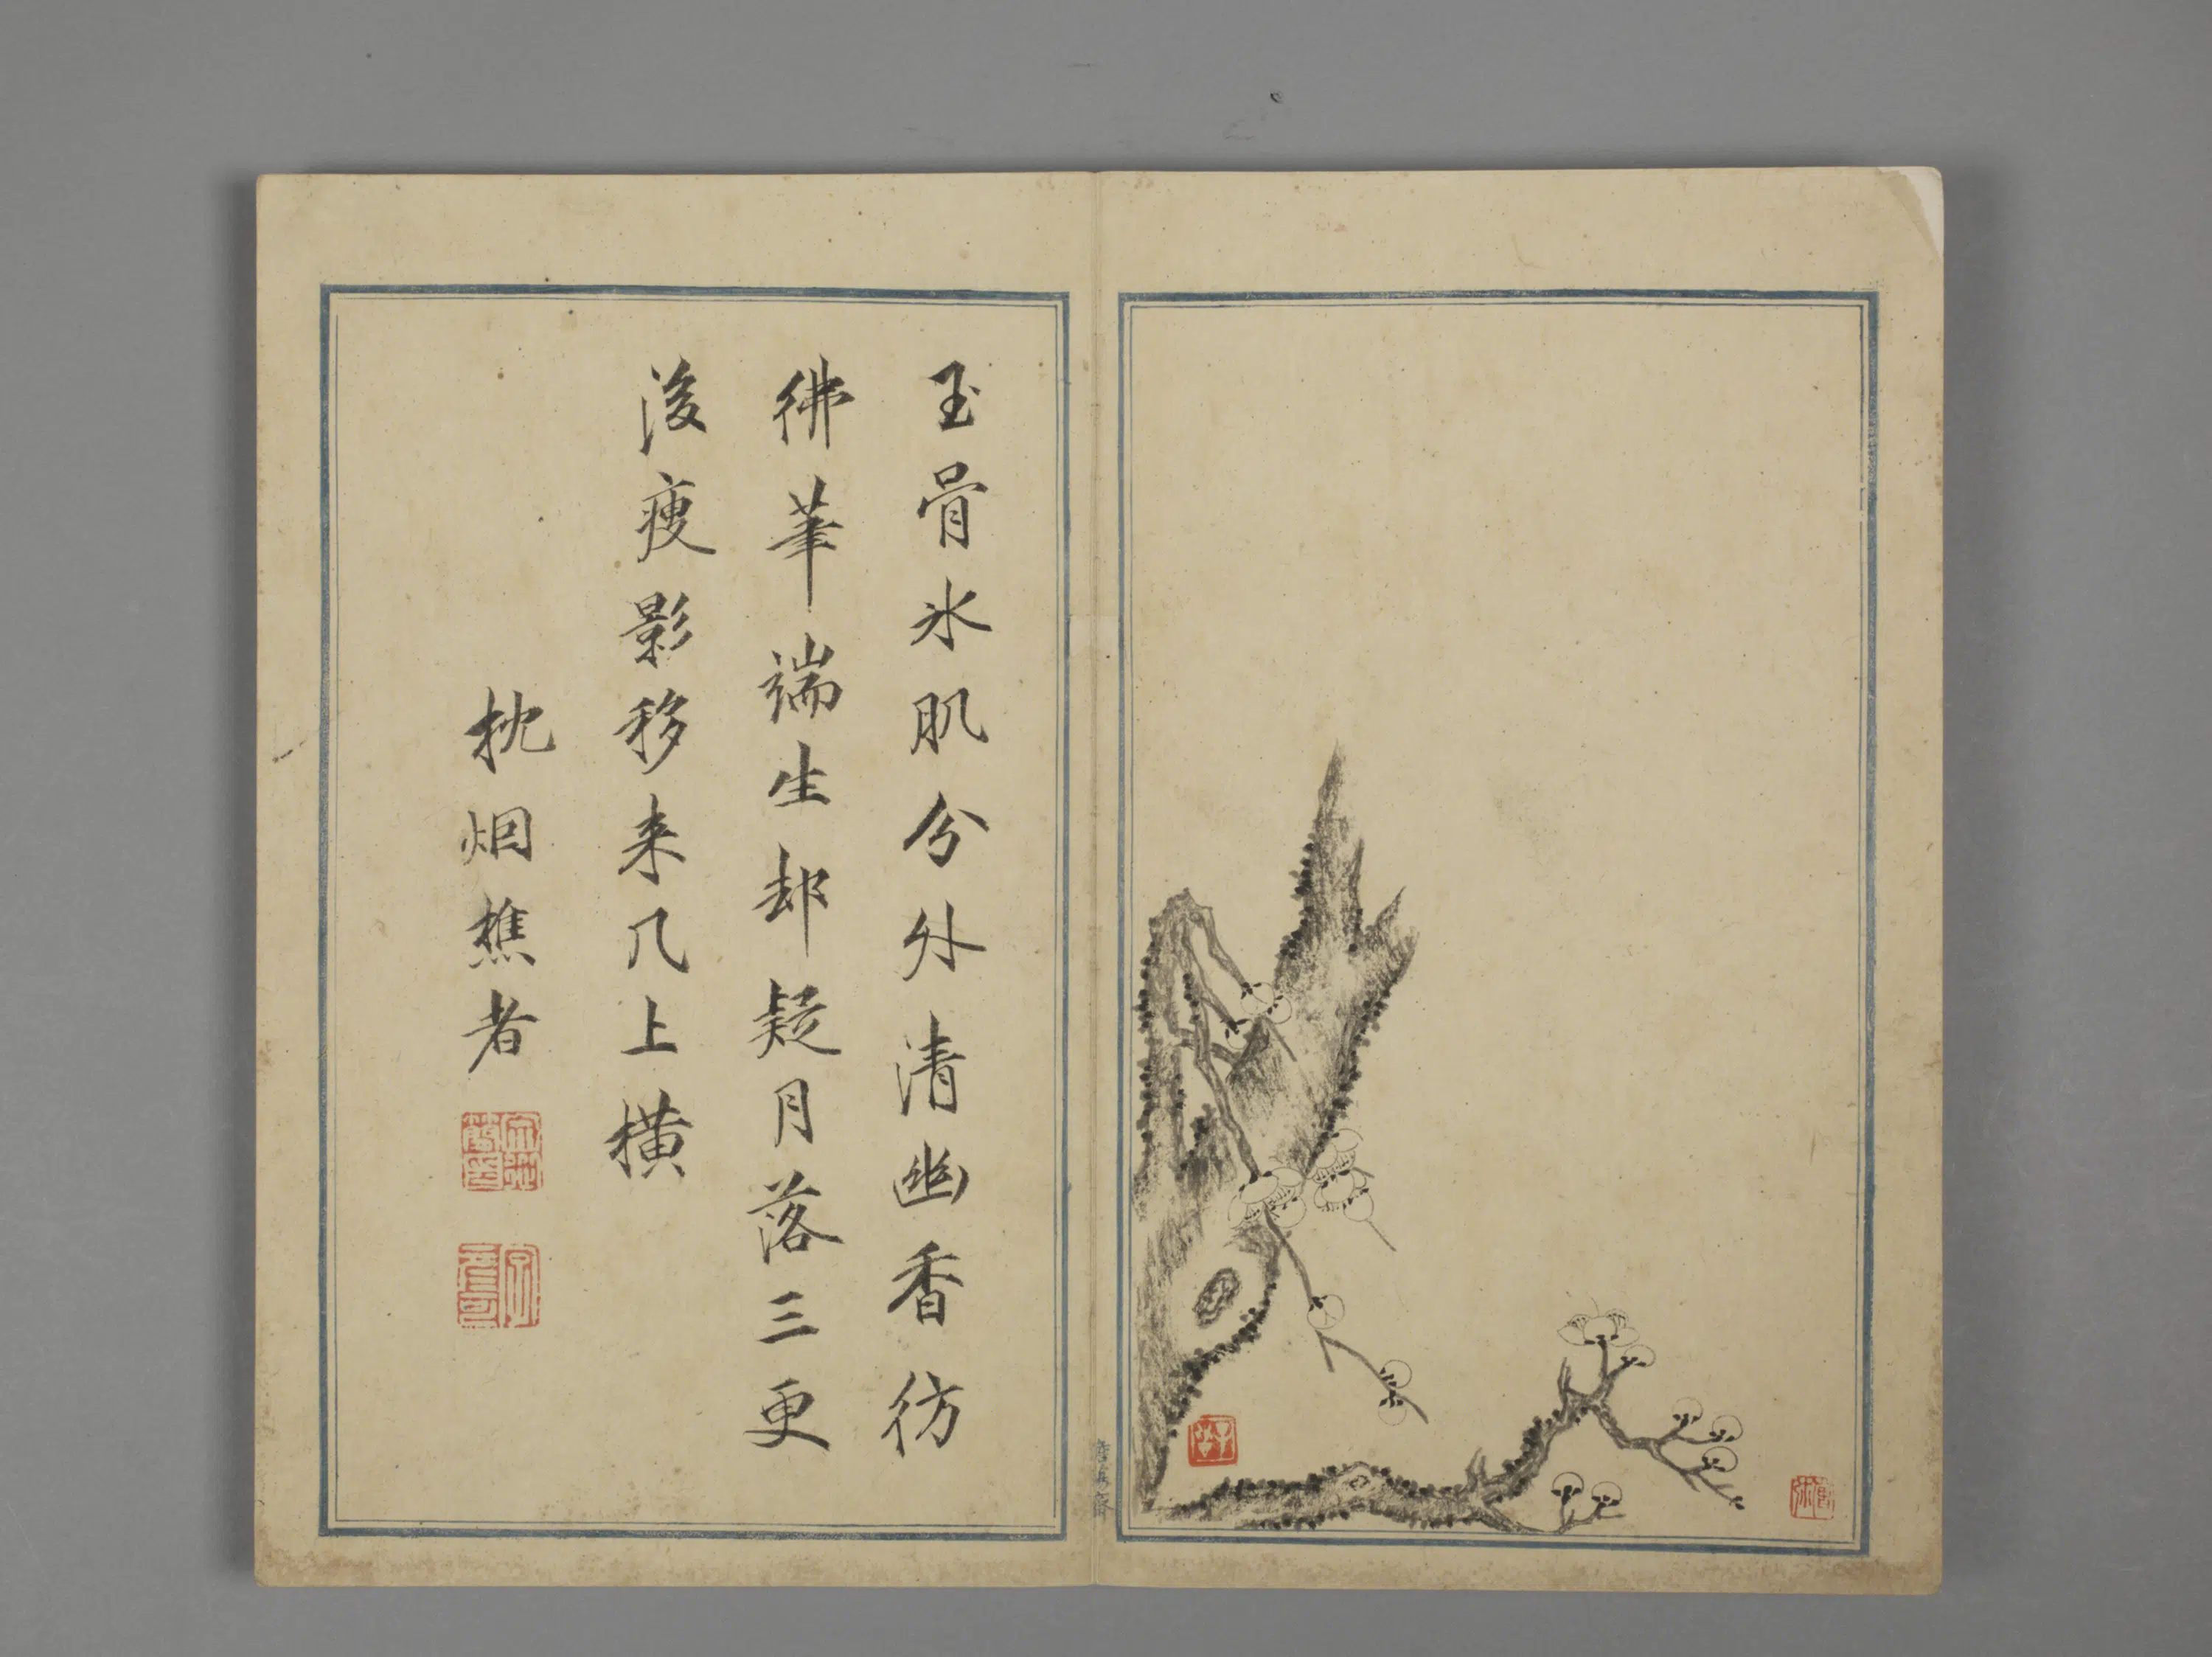 玉骨氷肌分外清幽香彷
彿筆端生却疑月落三更
後瘦影移来几上横
枕烟樵者